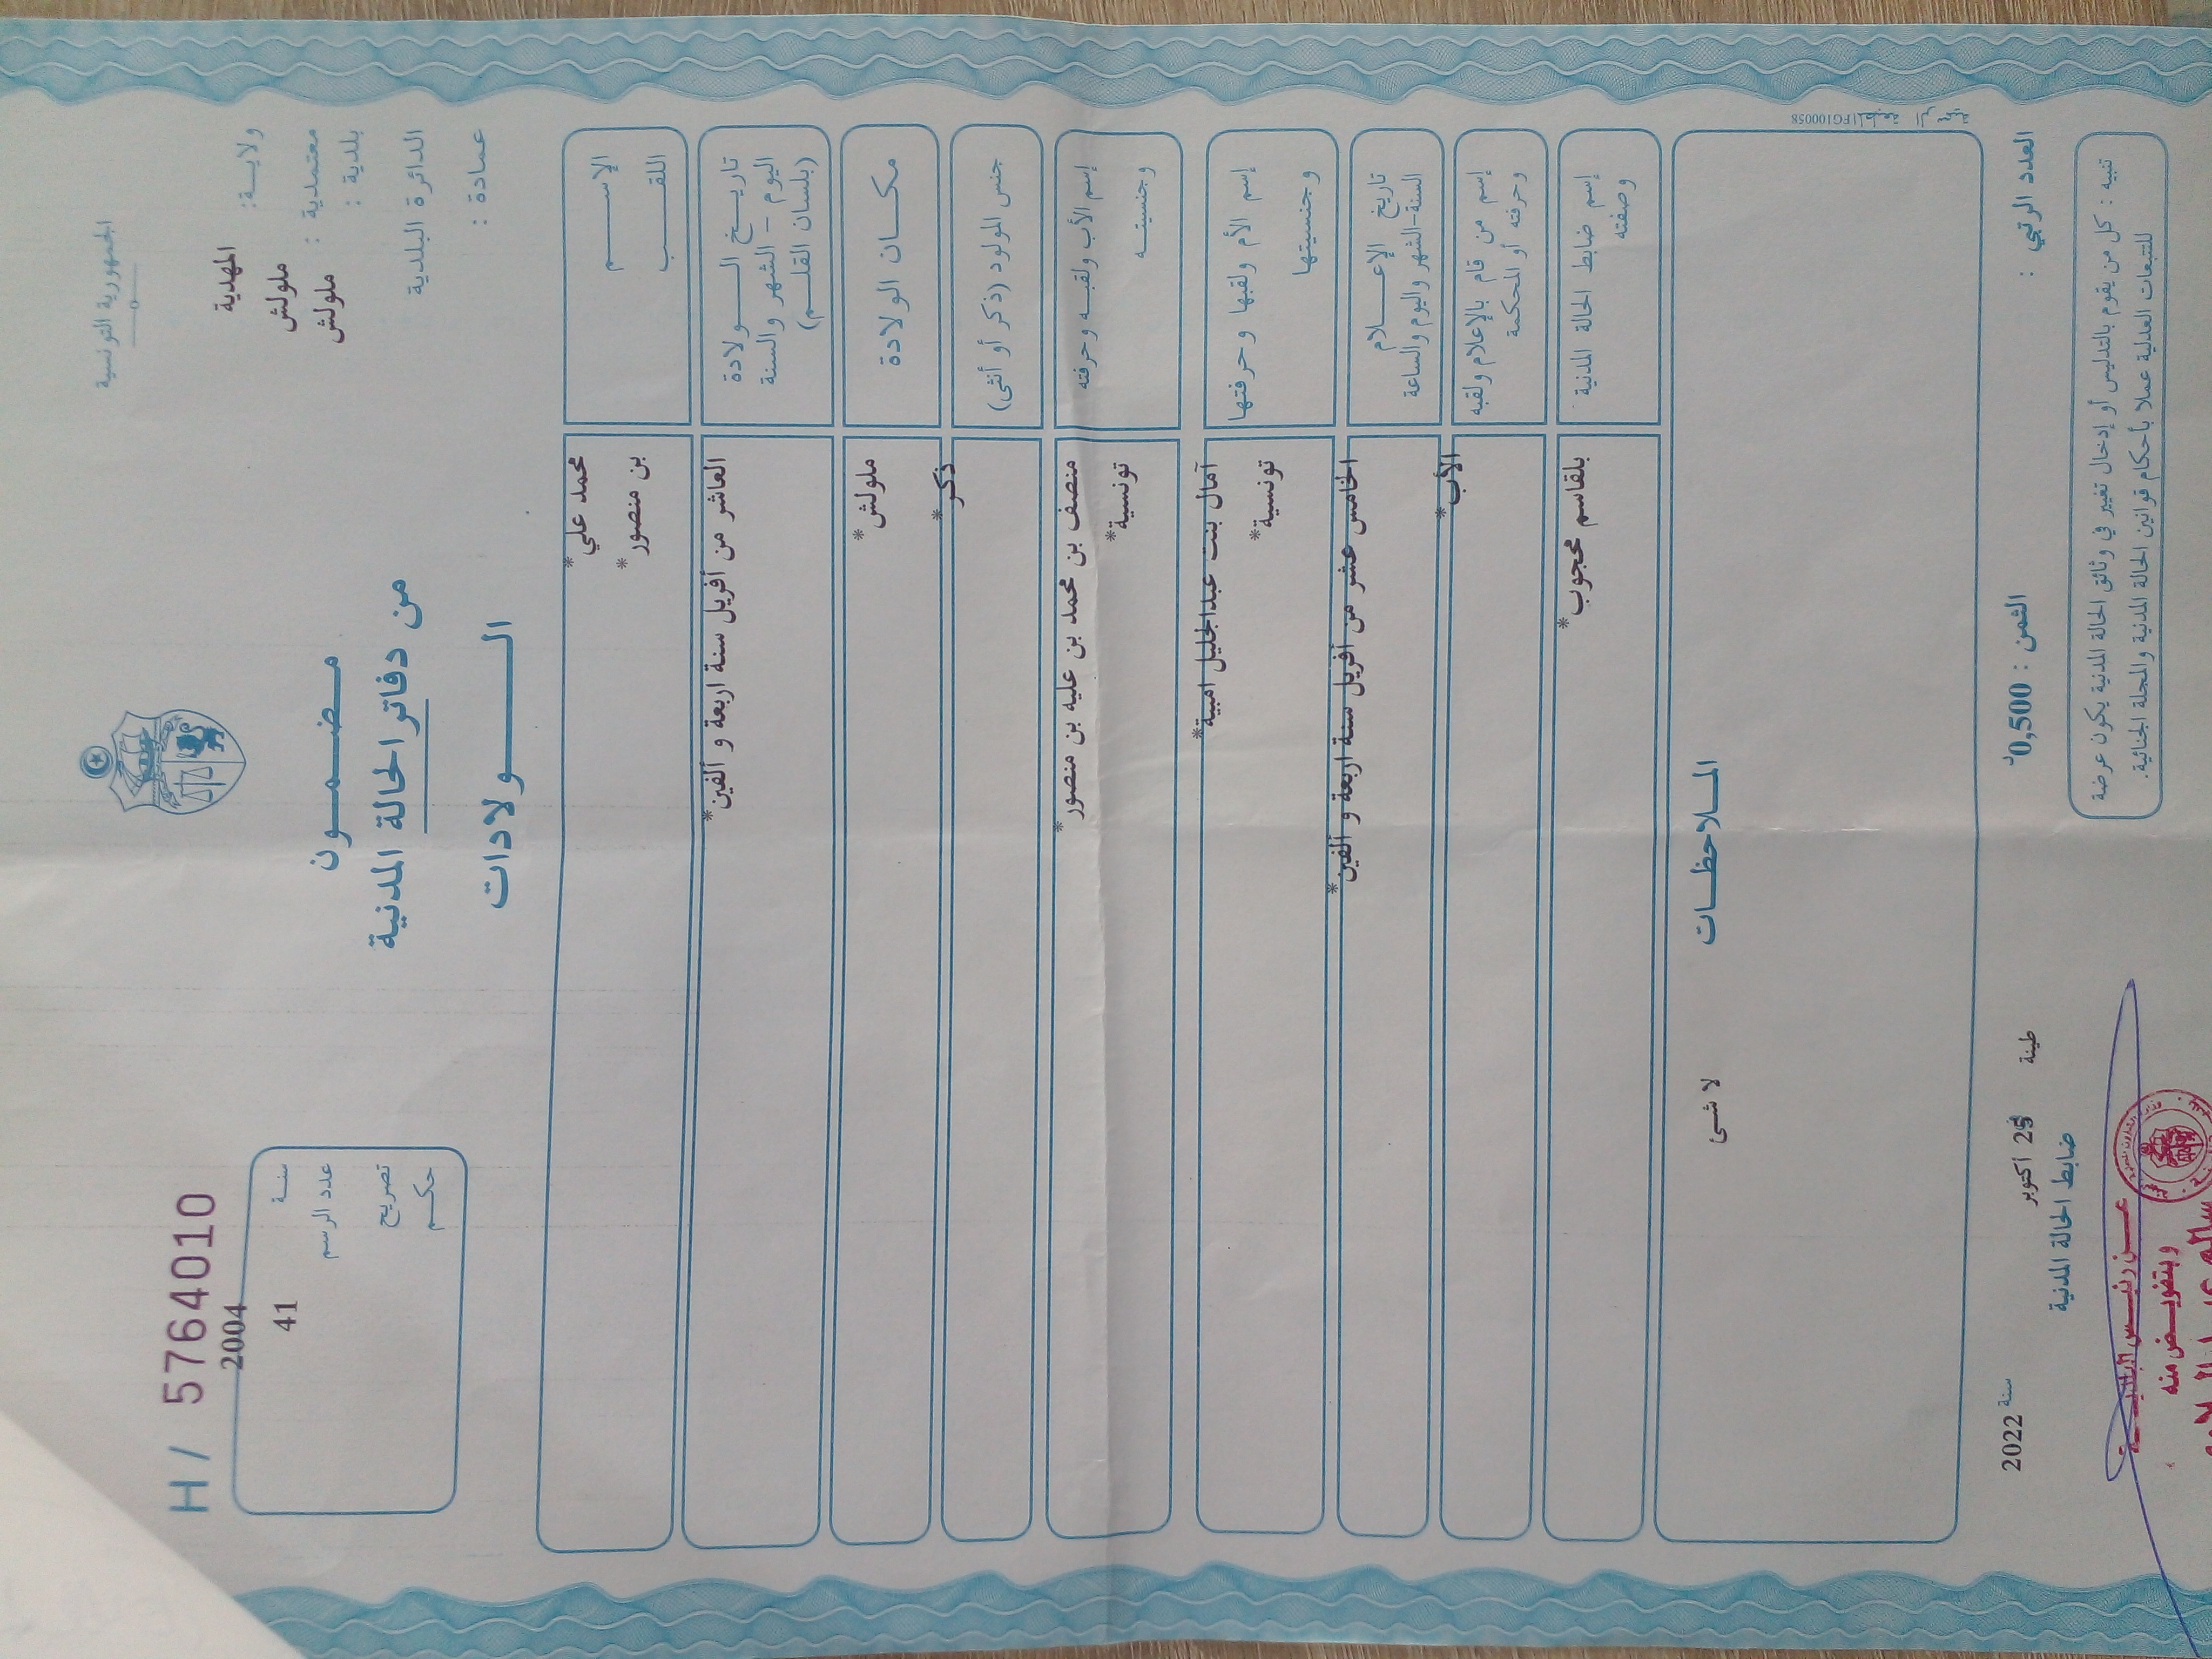 الجمهورية التونسية
ولاية: المهدية
معتمدية : ملولش
بلدية : ملولش
الدائرة البلدية
عمادة :
H / 5764010
2004
سنة
41
عدد الرسم
تصريح
حكم
مضمون
من دفاتر الحالة المدنية
الولادات
الإسم
محمد علي*
اللقب
بن منصور*
تاريخ الولادة
اليوم - الشهر والسنة
(بلسان القلم)
العاشر من أفريل سنة اربعة و ألفين*
مكان الولادة
ملولش*
جنس المولود (ذكر أو أنثى)
ذكر*
إسم الأب ولقبه وحرفته
وجنسيته
منصف بن محمد بن عليه بن منصور*
تونسية*
إسم الأم ولقبها وحرفتها
وجنسيتها
آمال بنت عبدالجليل امبية*
تونسية*
تاريخ الإعلام
السنة-الشهر واليوم والساعة
الخامس عشر من أفريل سنة اربعة و ألفين*
إسم من قام بالإعلام ولقبه
وحرفته أو المحكمة
الأب*
إسم ضابط الحالة المدنية
وصفته
بلقاسم محجوب*
الملاحظات
لا شئ
المطبعة الرسمية
1FG100058
العدد الرتبي :
الثمن : 0,500د
طينة في 25 أكتوبر سنة 2022
ضابط الحالة المدنية
تنبيه : كل من يقوم بالتدليس أو إدخال تغيير في وثائق الحالة المدنية يكون عرضة
للتتبعات العدلية عملا بأحكام قوانين الحالة المدنية والمجلة الجنائية.
عن رئيس البلدية
وبتفويض منه